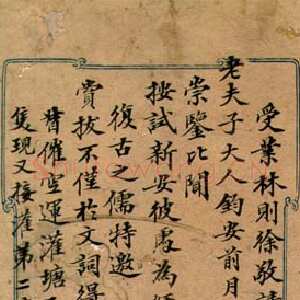 受業林則徐敬請
老夫子大人鈞安前月
崇鑒比聞
按試新安彼處為
復古之儒特邀
賞拔不僅於文詞得
督催空運灌塘
隻現又接灌第二